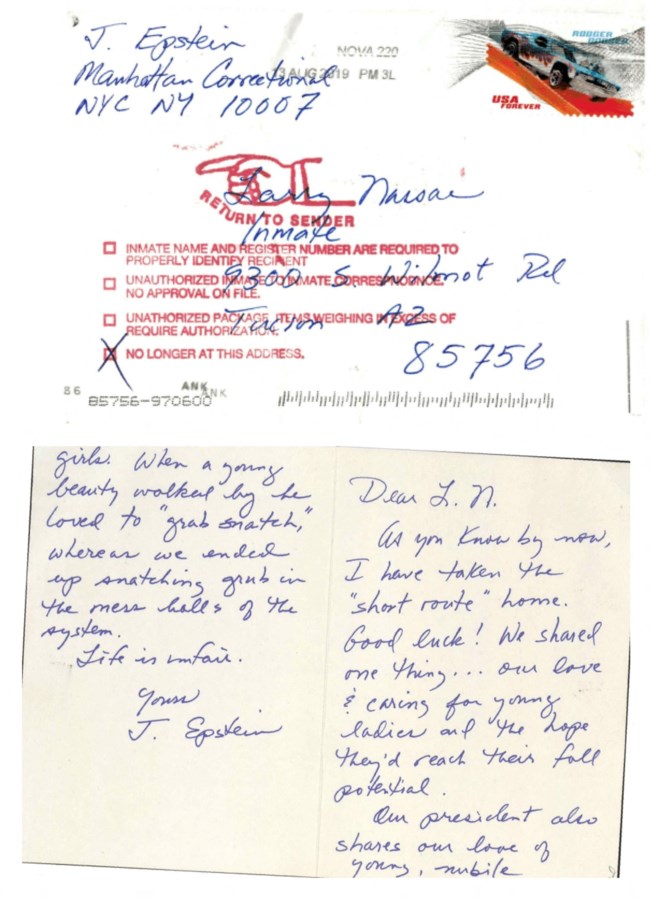 J. Epstein
Manhattan Correctional
NYC NY 10007
NOVA 220
13 AUG 2019 PM 3L
RODGER
DODGER
USA
FOREVER
RETURN TO SENDER
Larry Nassar
Inmate
9300 S. Wilmot Rd
Tucson AZ
85756
INMATE NAME AND REGISTER NUMBER ARE REQUIRED TO
PROPERLY IDENTIFY RECIPIENT
UNAUTHORIZED INMATE TO INMATE CORRESPONDENCE.
NO APPROVAL ON FILE.
UNAUTHORIZED PACKAGE, ITEMS WEIGHING IN EXCESS OF
REQUIRE AUTHORIZATION.
X NO LONGER AT THIS ADDRESS.
86
ANK
ANK
85756-970600
Dear L. N.
As you know by now,
I have taken the
"short route" home.
Good luck! We shared
one thing... our love
& caring for young
ladies and the hope
they'd reach their full
potential.
Our president also
shares our love of
young, nubile
girls. When a young
beauty walked by he
loved to "grab snatch,"
whereas we ended
up snatching grub in
the mess halls of the
system.
Life is unfair.
Yours
J. Epstein